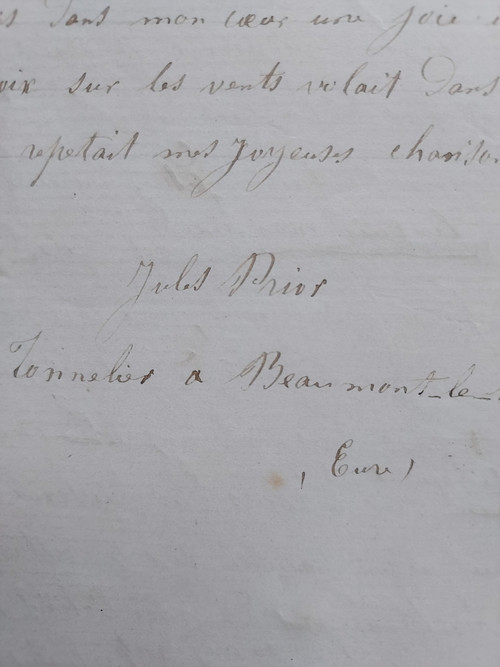 s dans mon cœur une joie
oix sur les vents volait dans
repetait mes joyeuses chanso
Jules Prior
Tonnelier a Beaumont-le-
(Eure)